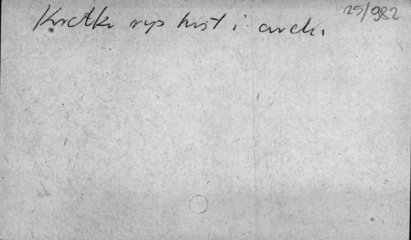 25/982
Krótki rys hist i arch.